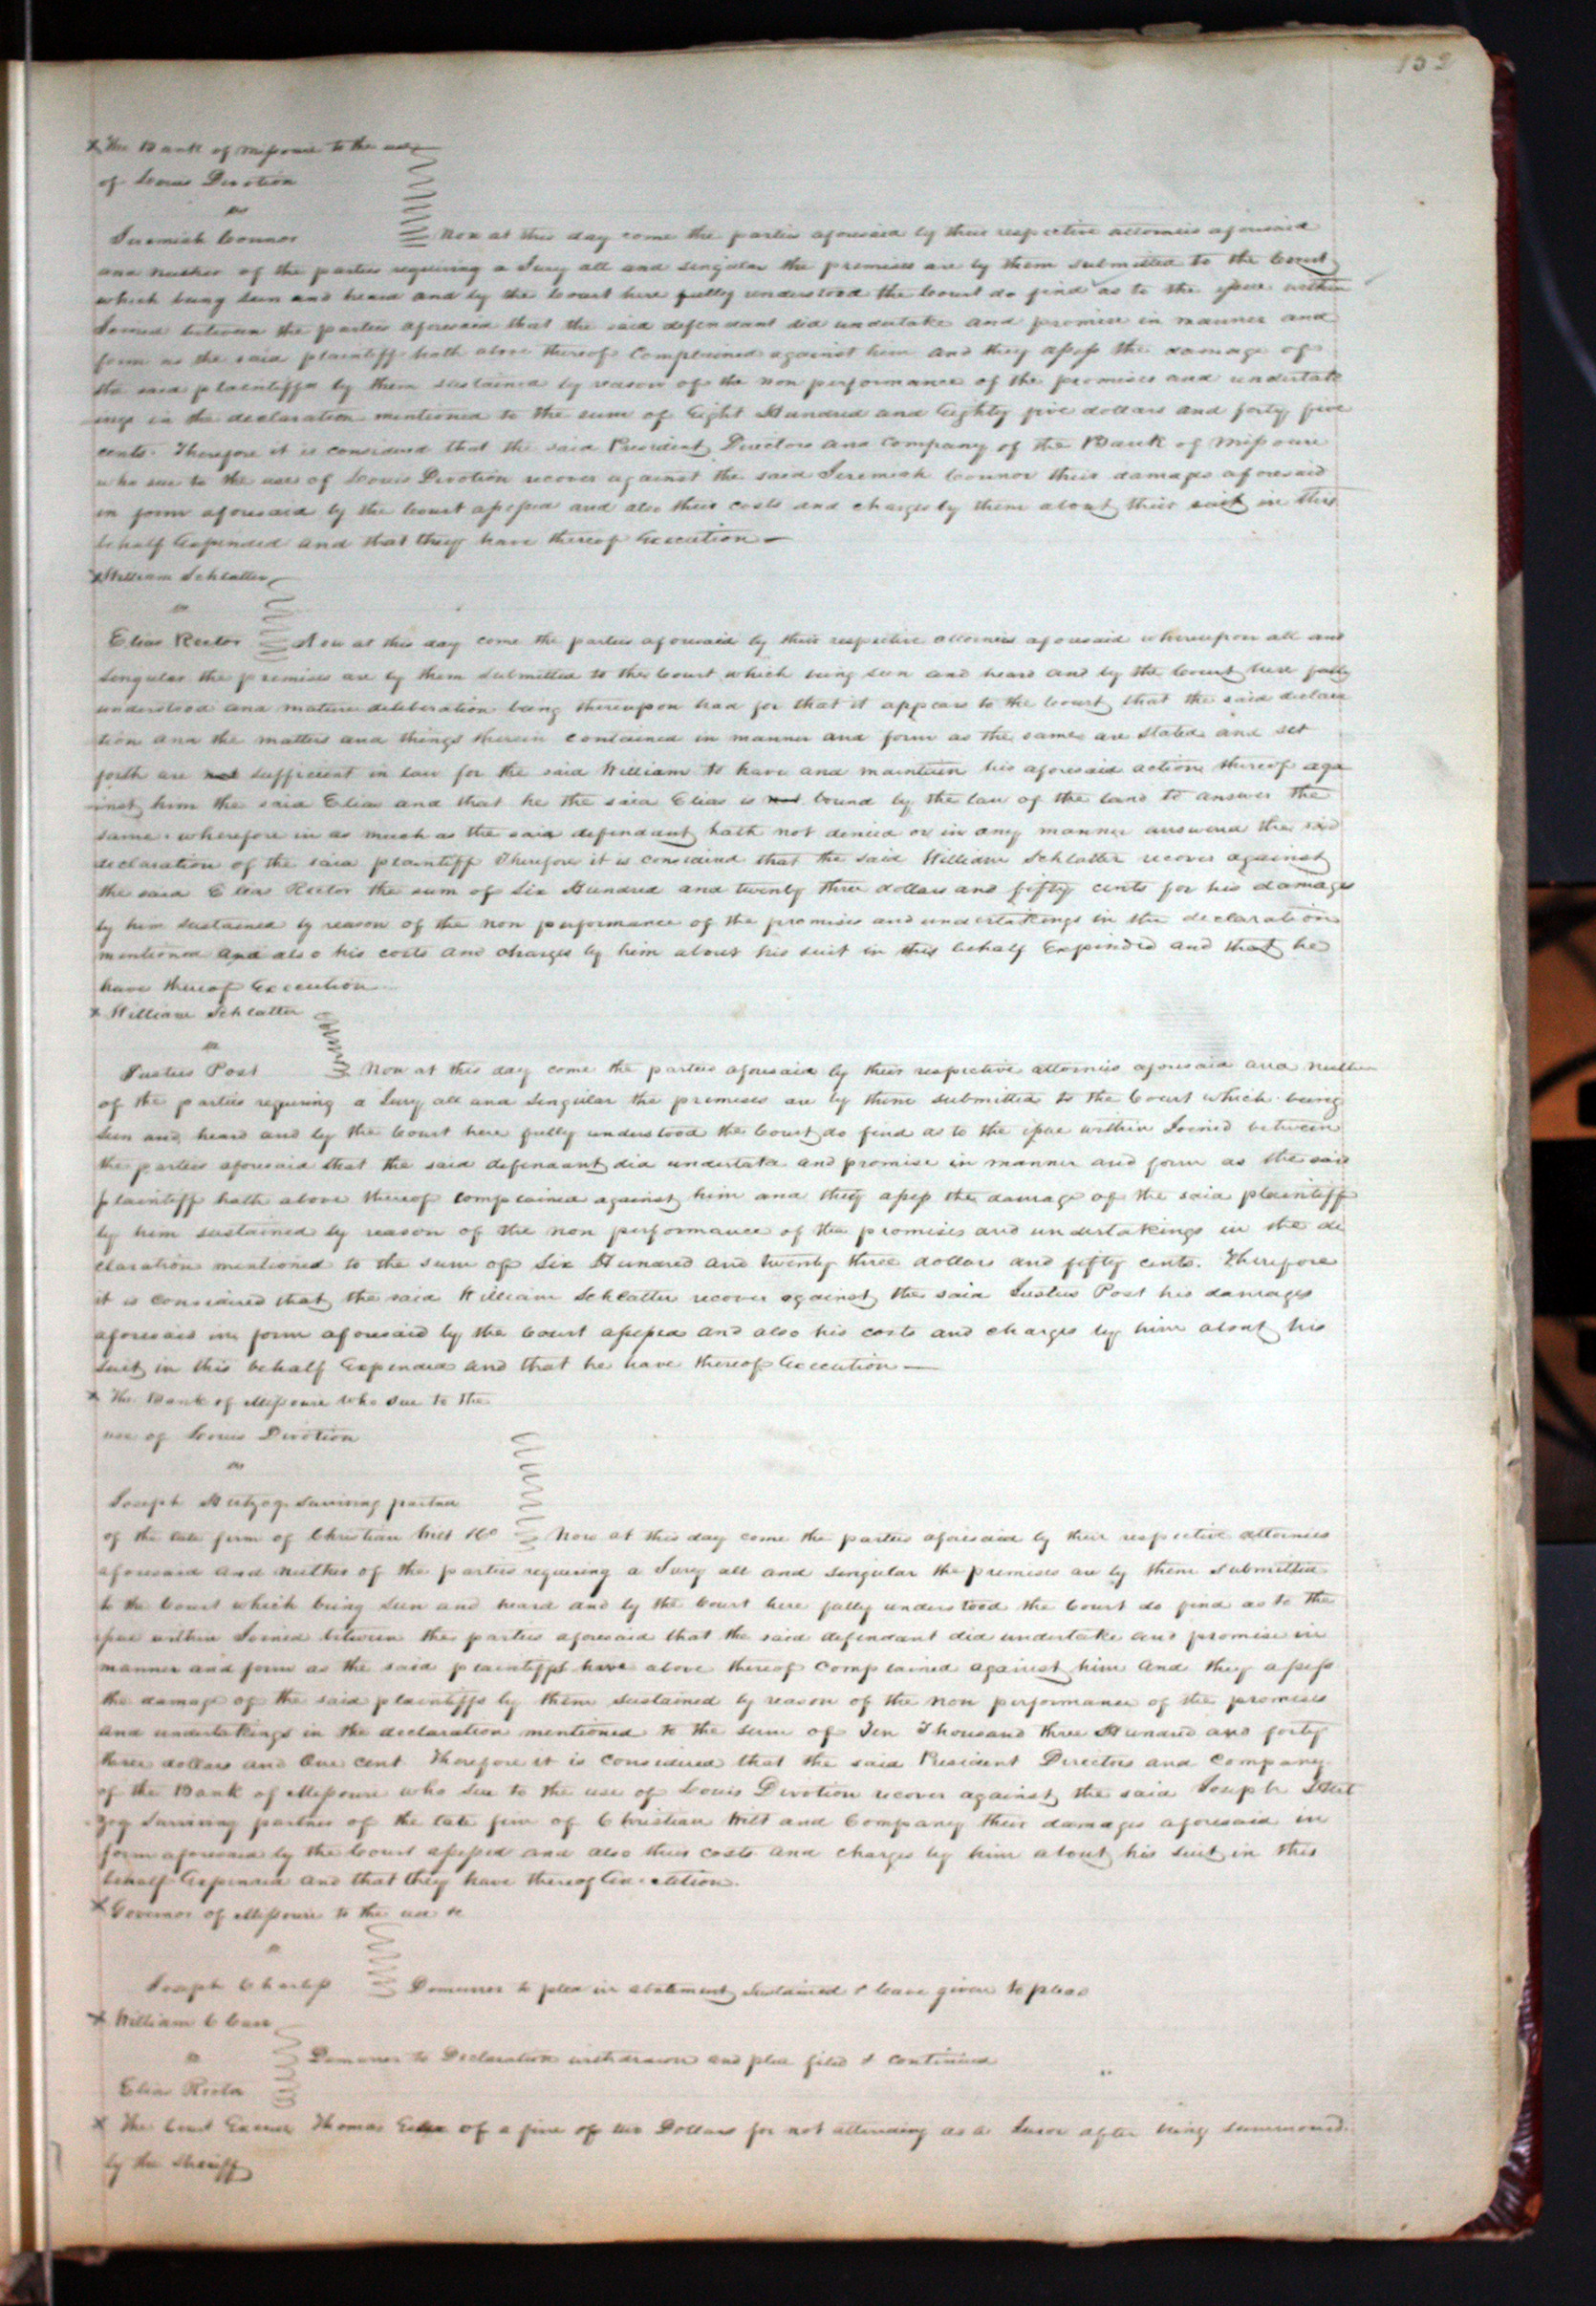 132
x The Bank of Missouri to the use
of Louis Devotion
vs
Jeremiah Connor Now at this day come the parties aforesaid by their respective attornies aforesaid
and neither of the parties requiring a Jury all and singular the premises are by them submitted to the Court
which being seen and heard and by the Court here fully understood the Court do find as to the issue within
Joined between the parties aforesaid that the said defendant did undertake and promise in manner and
form as the said plaintiff hath above thereof Complained against him and they assess the damage of
the said plaintiffs by them sustained by reason of the non performance of the promises and undertak
ings in the declaration mentioned to the sum of Eight Hundred and Eighty five dollars and forty five
cents. Therefore it is considered that the said President Directors and Company of the Bank of Missouri
who sue to the use of Louis Devotion recover against the said Jeremiah Connor their damages aforesaid
in form aforesaid by the Court assessed and also their costs and charges by them about their suit in this
behalf Expended and that they have thereof Execution
x William Schlatter
vs
Elias Rector Now at this day come the parties aforesaid by their respective attornies aforesaid whereupon all and
singular the premises are by them submitted to the Court which being seen and heard and by the Court here fully
understood and mature deliberation being thereupon had for that it appears to the Court that the said declara
tion and the matters and things therein contained in manner and form as the same are stated and set
forth are not sufficient in law for the said William to have and maintain his aforesaid action thereof aga
inst him the said Elias and that he the said Elias is not bound by the law of the land to answer the
same. wherefore in as much as the said defendant hath not denied or in any manner answered the said
declaration of the said plaintiff Therefore it is considered that the said William Schlatter recover against
the said Elias Rector the sum of Six Hundred and twenty three dollars and fifty cents for his damages
by him sustained by reason of the non performance of the promises and undertakings in the declaration
mentioned and also his costs and charges by him about his suit in this behalf Expended and that he
have thereof Execution
x William Schlatter
vs
Justus Post Now at this day come the parties aforesaid by their respective attornies aforesaid and neither
of the parties requiring a Jury all and Singular the premises are by them submitted to the Court which being
seen and heard and by the Court here fully understood the Court do find as to the issue within Joined between
the parties aforesaid that the said defendant did undertake and promise in manner and form as the said
plaintiff hath above thereof complained against him and they assess the damage of the said plaintiff
by him sustained by reason of the non performance of the promises and undertakings in the de
claration mentioned to the sum of Six Hundred and twenty three dollars and fifty cents. Therefore
it is considered that the said William Schlatter recover against the said Justus Post his damages
aforesaid in form aforesaid by the Court assessed and also his costs and charges by him about his
suit in this behalf Expended and that he have thereof Execution
x The Bank of Missouri who sue to the
use of Louis Devotion
vs
Joseph Hertzog Surviving partner
of the late firm of Christian Wilt &Co Now at this day come the parties aforesaid by their respective attornies
aforesaid and neither of the parties requiring a Jury all and singular the premises are by them submitted
to the Court which being seen and heard and by the Court here fully understood the Court do find as to the
issue within Joined between the parties aforesaid that the said defendant did undertake and promise in
manner and form as the said plaintiffs have above thereof Complained against him and they assess
the damage of the said plaintiffs by them sustained by reason of the non performance of the promises
and undertakings in the declaration mentioned to the sum of Ten Thousand three Hundred and forty
three dollars and One cent Therefore it is considered that the said President Directors and Company
of the Bank of Missouri who sue to the use of Louis Devotion recover against the said Joseph Hert
zog Surviving partner of the late firm of Christian Wilt and Company their damages aforesaid in
form aforesaid by the Court assessed and also their costs and charges by him about his suit in this
behalf Expended and that they have thereof Execution.
x Governor of Missouri to the use &c
vs
Joseph Charless Demurrer to plea in abatement Sustained & leave given to plead
x William C Carr
vs
Demurrer to Declaration withdrawn and plea filed & continued
Elias Rector
x The Court Excuse Thomas of a fine of two Dollars for not attending as a Juror after being summoned
by the Sheriff